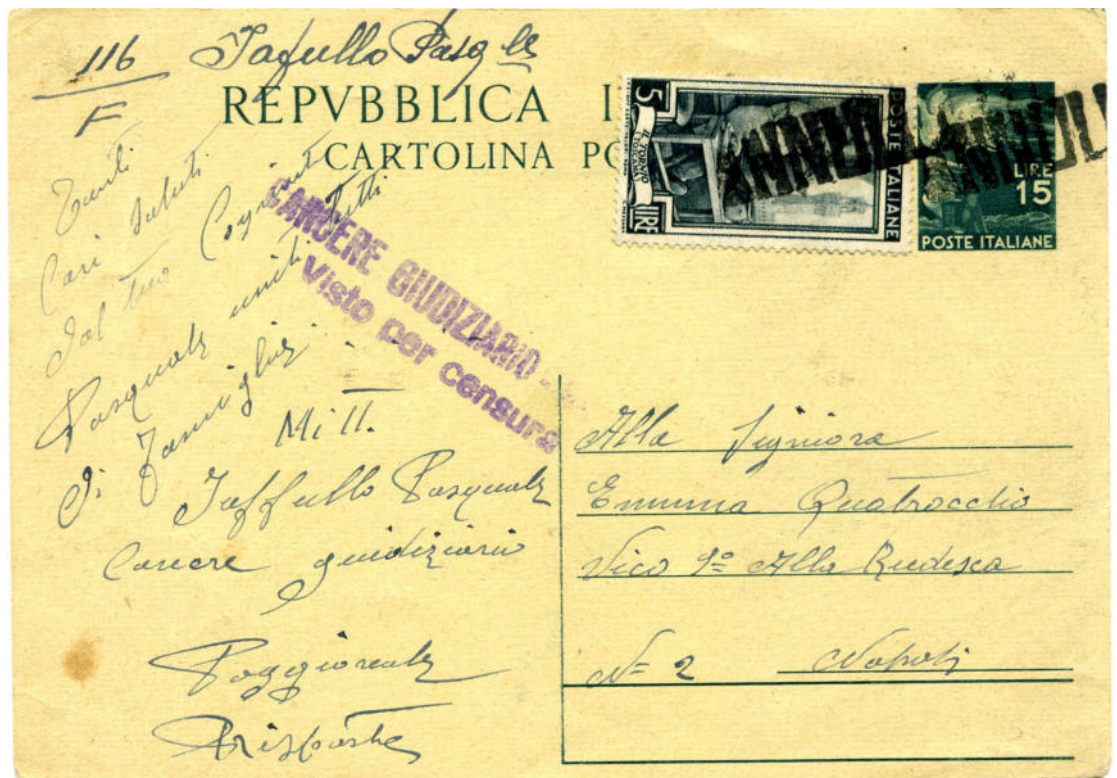 116 Taffullo Pasq le
F
REPVBBLICA I
CARTOLINA PO
5
LIRE
POSTE ITALIANE
ANNUL
ANNULL
LIRE
15
POSTE ITALIANE
Tanti
Cari Saluti
dal tuo Cognato
Pasquale uniti tutti
di Famiglia
CARCERE GIUDIZIARIO
Visto per censura
Mitt.
Taffullo Pasquale
Carcere giudiziario
Poggioreale
Risposta
Alla Signiora
Emmma Quatrocchio
Vico 1º Alla
N= 2 Napoli